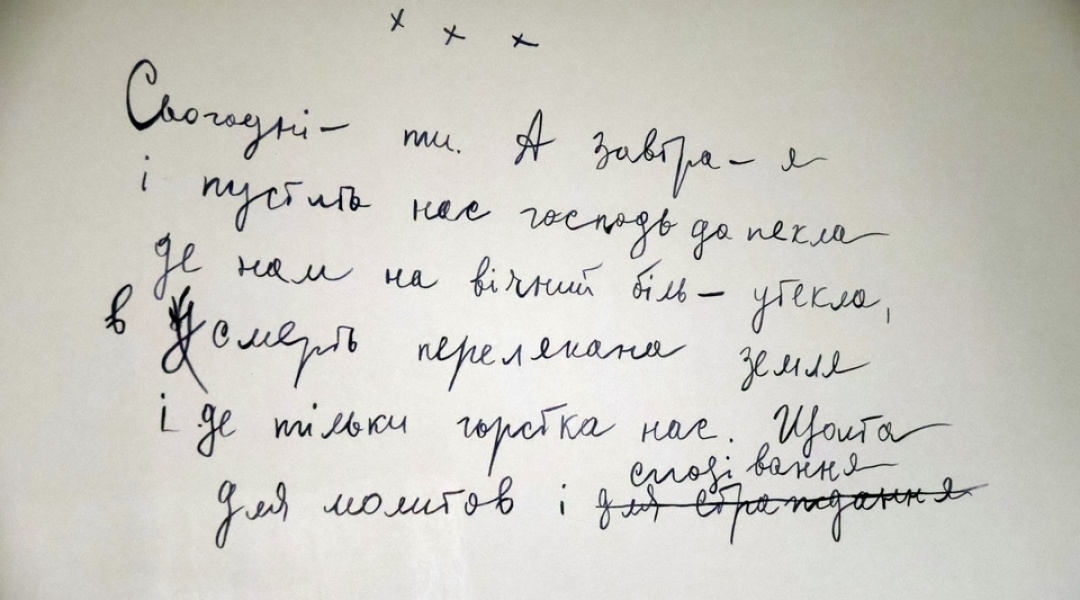 х х х
Сьогодні – ти. А завтра – я
і пустить нас господь до пекла
де нам на вічний біль – утекла,
в смерть перелякана земля
і де тільки горстка нас.
сподівання
Для молитов і для страждання